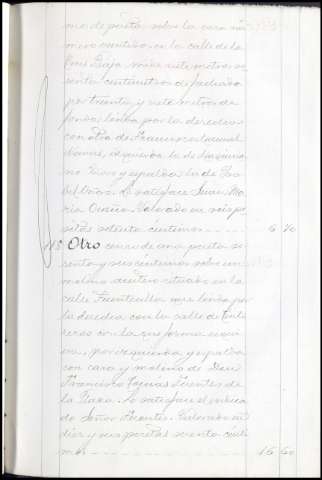 mo de peseta sobre la casa nú
mero veintiuno en la calle de la
Cruz Baja mide siete metros se
senta centímetros de fachada
por treinta y siete metros de
fondo linda por la derecha
con otra de Francisco
izquierda la de
y espalda la de
Lo satisface Juan Ma
ría Valorado en seis pe
setas setenta céntimos 6 70
118 Otro censo de una peseta se
senta y seis céntimos sobre un
molino aceitero situado en la
calle Fuentecilla que linda por
la derecha con la calle de
con la que forma esqui
na, por izquierda y espalda
con casa y molino de Don
Francisco Tomás Fuentes de
la Plaza. Lo satisface el indica
do Señor Fuentes. Valorado en
diez y seis pesetas sesenta cénti
mos 16 60